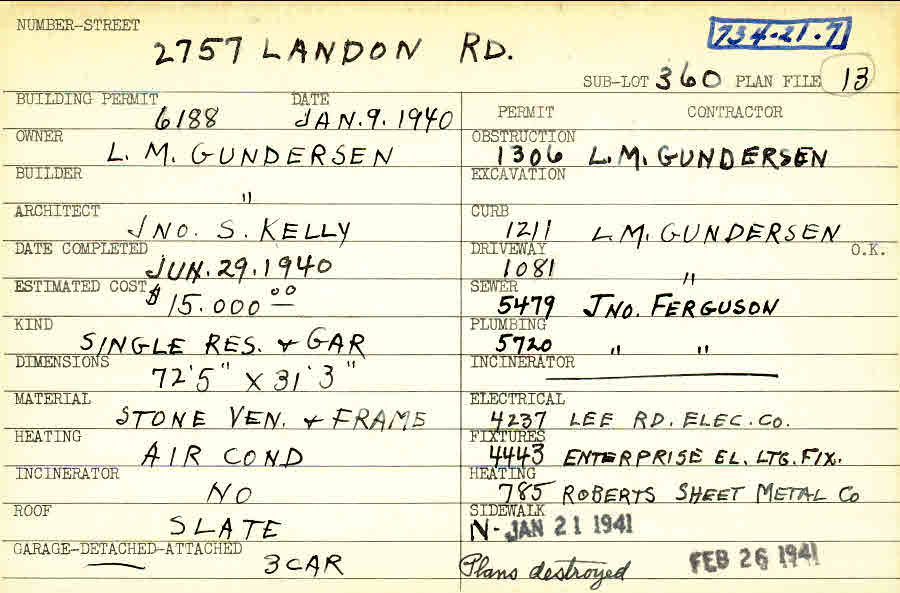 NUMBER-STREET
2757 LANDON RD.
734-21-7
SUB-LOT 360 PLAN FILE 13
BUILDING PERMIT DATE
6188 JAN. 9. 1940
OWNER
L. M. GUNDERSEN
BUILDER
"
ARCHITECT
JNO. S. KELLY
DATE COMPLETED
JUN. 29. 1940
ESTIMATED COST
$15.000 00
KIND
SINGLE RES. & GAR
DIMENSIONS
72'5" X 31'3"
MATERIAL
STONE VEN. & FRAME
HEATING
AIR COND
INCINERATOR
NO
ROOF
SLATE
GARAGE-DETACHED-ATTACHED
3 CAR
PERMIT CONTRACTOR
OBSTRUCTION
1306 L. M. GUNDERSEN
EXCAVATION
CURB
1211 L. M. GUNDERSEN
DRIVEWAY O.K.
1081 "
SEWER
5479 JNO. FERGUSON
PLUMBING
5720 " "
INCINERATOR
ELECTRICAL
4237 LEE RD. ELEC. CO.
FIXTURES
4443 ENTERPRISE EL. LTG. FIX.
HEATING
785 ROBERTS SHEET METAL CO
SIDEWALK
N- JAN 21 1941
Plans destroyed FEB 26 1941